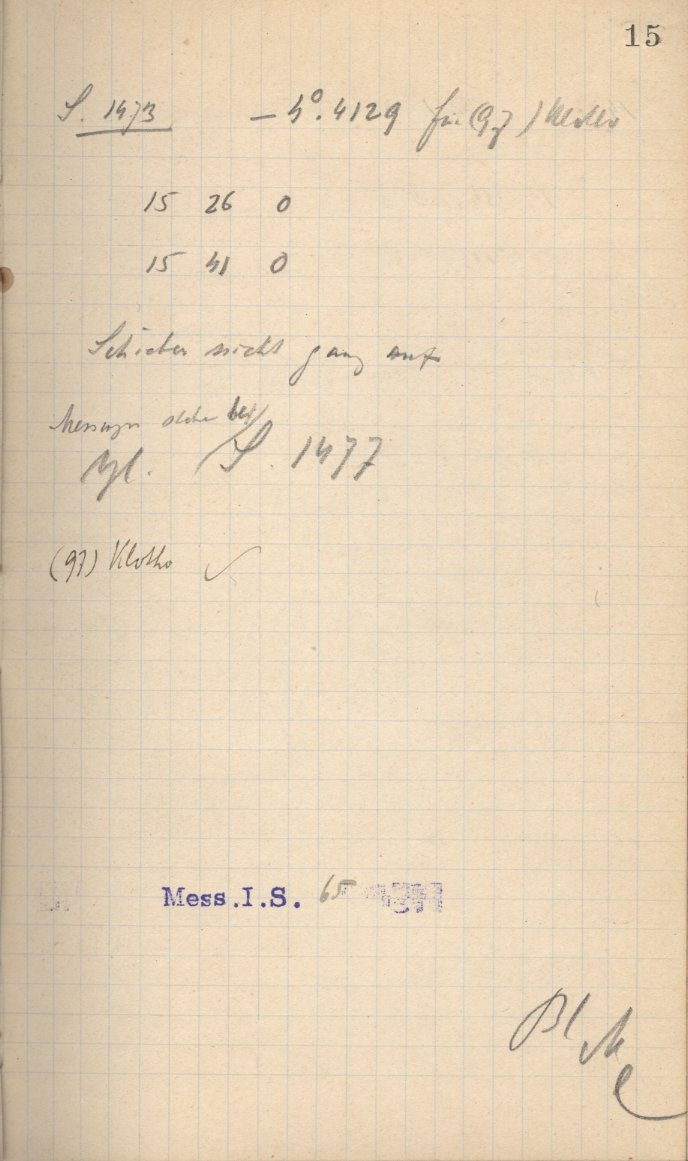 15
S. 1473 – 4°.4129 für (97) Klotho
15 26 0
15 41 0
Schieber nicht ganz auf
Messungen siehe bei
Vgl. S. 1477
(97) Klotho ✓
Mess.I.S. 65